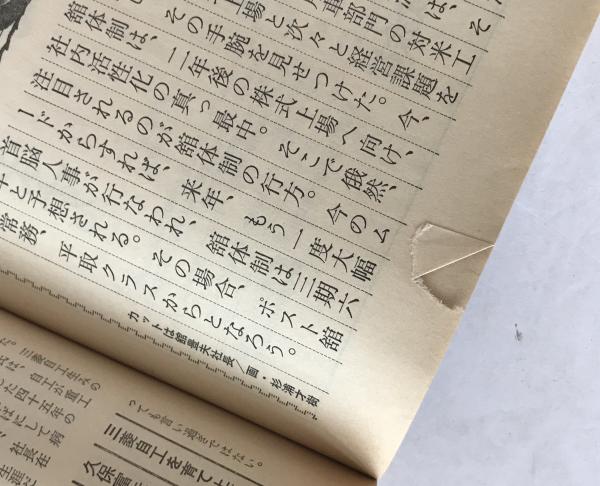 は、そ
車部門の対米工
上場と次々と経営課題を
その手腕を見せつけた。今、
舘体制は、二年後の株式上場へ向け、
社内活性化の真っ最中。そこで俄然、
注目されるのが舘体制の行方。今のム
ードからすれば、来年、もう一度大幅
首脳人事が行なわれ、舘体制は三期六
と予想される。その場合、ポスト舘
常務、平取クラスからとなろう。
カットは舘豊夫社長／画・杉浦才樹
三菱自工生えの
は、自工が重工
た四十五年の
ばにして病
、社長在
生涯を
つても言い過ぎではない。
三菱自工を育て上
久保富